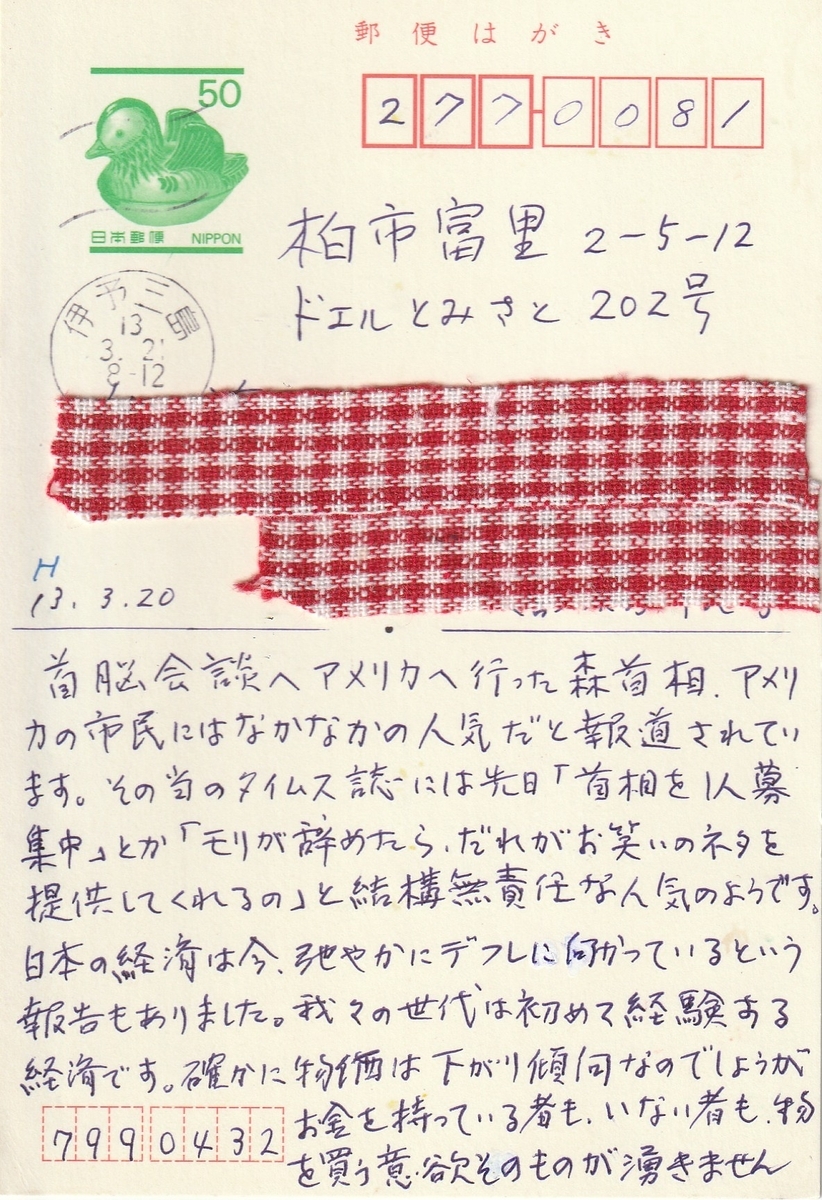 郵便はがき
50
日本郵便 NIPPON
277-0081
柏市富里 2-5-12
ドエルとみさと 202号
伊予三島
13
3.21
8-12
H
13.3.20
首脳会談へアメリカへ行った森首相、アメリ
カの市民にはなかなかの人気だと報道されてい
ます。その当のタイムス誌には先日「首相を1人募
集中」とか「モリが辞めたら、だれがお笑いのネタを
提供してくれるの」と結構無責任な人気のようです。
日本の経済は今、弛やかにデフレに向かっているという
報告もありました。我々の世代は初めて経験する
経済です。確かに物価は下がり傾向なのでしょうが
お金を持っている者も、いない者も、物
を買う意欲そのものが湧きません
7990432